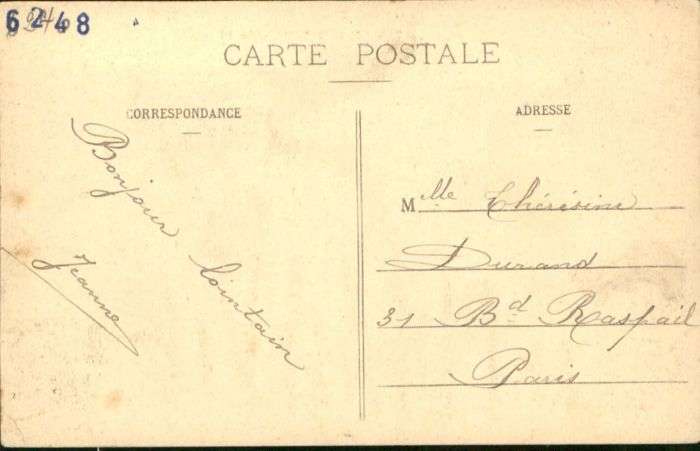 6248
CARTE POSTALE
CORRESPONDANCE
Bonjour lointain
Jeanne
ADRESSE
Mlle Thérésine
Durand
31 Bd Raspail
Paris